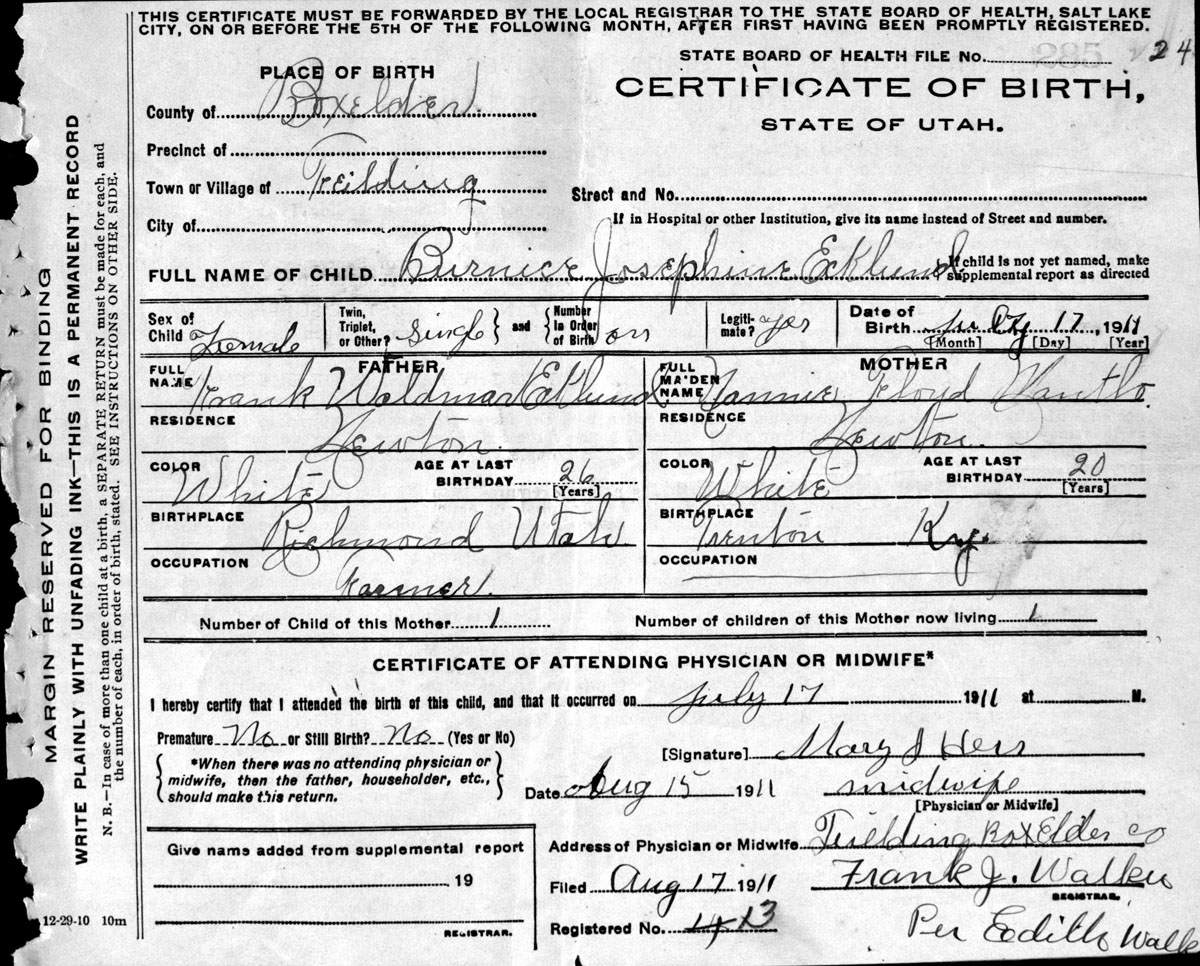 THIS CERTIFICATE MUST BE FORWARDED BY THE LOCAL REGISTRAR TO THE STATE BOARD OF HEALTH, SALT LAKE
CITY, ON OR BEFORE THE 5TH OF THE FOLLOWING MONTH, AFTER FIRST HAVING BEEN PROMPTLY REGISTERED.
STATE BOARD OF HEALTH FILE No. 24
PLACE OF BIRTH
CERTIFICATE OF BIRTH,
County of Boxelder
STATE OF UTAH.
Precinct of
Town or Village of Feilding
Street and No.
If in Hospital or other Institution, give its name instead of Street and number.
City of
FULL NAME OF CHILD Burnice Josephine Ecklund
If child is not yet named, make
supplemental report as directed
Sex of Child Female
Twin, Triplet, or Other? Single
and
Number In Order of Birth
Legiti-mate? yes
Date of Birth July 17, 1911
[Month] [Day] [Year]
FATHER
MOTHER
FULL NAME Frank Waldmar Eklund
FULL MAIDEN NAME Nannie Floyd
RESIDENCE
Newton
RESIDENCE
Newton
COLOR White
AGE AT LAST BIRTHDAY 26
[Years]
COLOR White
AGE AT LAST BIRTHDAY 20
[Years]
BIRTHPLACE Richmond Utah
BIRTHPLACE Trenton Ky.
OCCUPATION
Farmer
OCCUPATION
Number of Child of this Mother 1
Number of children of this Mother now living 1
CERTIFICATE OF ATTENDING PHYSICIAN OR MIDWIFE*
I hereby certify that I attended the birth of this child, and that it occurred on July 17 1911 at M.
Premature No or Still Birth? No (Yes or No)
[Signature] Mary J Hess
*When there was no attending physician or
midwife, then the father, householder, etc.,
should make this return.
Date Aug 15 1911
midwife
[Physician or Midwife]
Give name added from supplemental report
19
REGISTRAR.
Address of Physician or Midwife Fielding BoxElder co
Filed Aug 17 1911
Frank J. Walker
REGISTRAR.
Registered No.
Per Eedith Walk
MARGIN RESERVED FOR BINDING
WRITE PLAINLY WITH UNFADING INK—THIS IS A PERMANENT RECORD
N. B.—In case of more than one child at a birth, a SEPARATE RETURN must be made for each, and
the number of each, in order of birth, stated. SEE INSTRUCTIONS ON OTHER SIDE.
12-29-10 10m